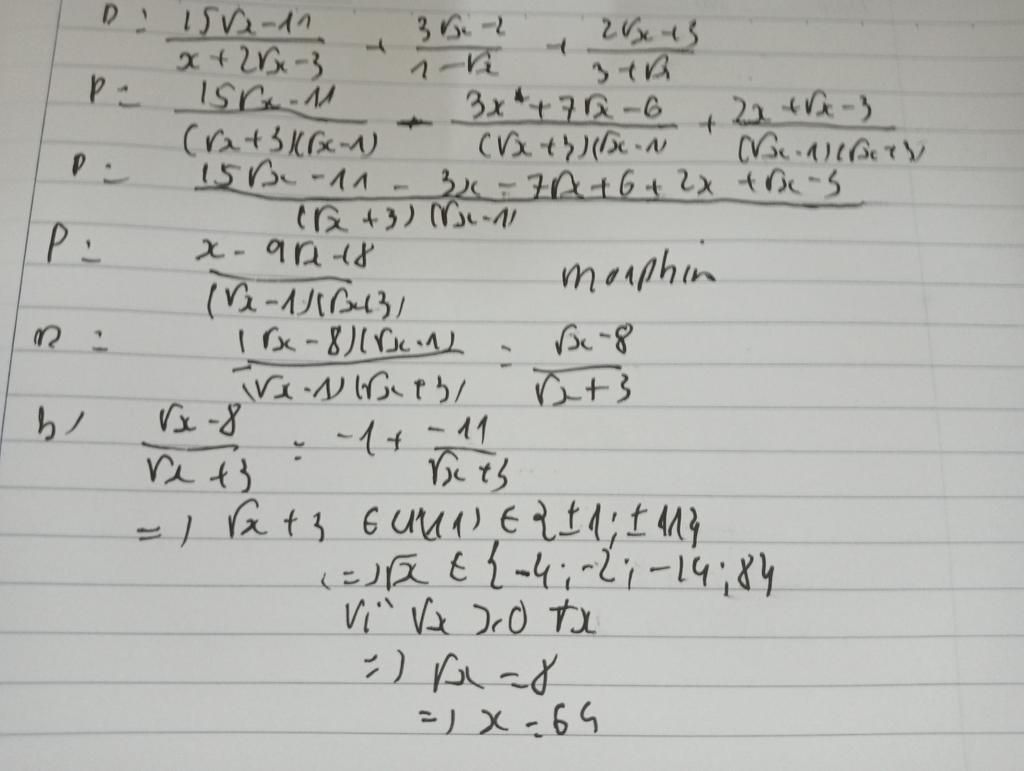 P = \frac{15\sqrt{x}-11}{x+2\sqrt{x}-3} + \frac{3\sqrt{x}-2}{1-\sqrt{x}} + \frac{2\sqrt{x}+3}{3+\sqrt{x}}
P = \frac{15\sqrt{x}-11}{(\sqrt{x}+3)(\sqrt{x}-1)} - \frac{3x+7\sqrt{x}-6}{(\sqrt{x}+3)(\sqrt{x}-1)} + \frac{2x+\sqrt{x}-3}{(\sqrt{x}-1)(\sqrt{x}+3)}
P = \frac{15\sqrt{x}-11-3x-7\sqrt{x}+6+2x+\sqrt{x}-3}{(\sqrt{x}+3)(\sqrt{x}-1)}
P = \frac{x-9\sqrt{x}+8}{(\sqrt{x}-1)(\sqrt{x}+3)} morphin
P = \frac{(\sqrt{x}-8)(\sqrt{x}-1)}{(\sqrt{x}-1)(\sqrt{x}+3)} = \frac{\sqrt{x}-8}{\sqrt{x}+3}
b) \frac{\sqrt{x}-8}{\sqrt{x}+3} = -1 + \frac{-11}{\sqrt{x}+3}
=) \sqrt{x}+3 ∈ Ư(11) ∈ {±1; ±11}
(=) \sqrt{x} ∈ {-4; -2; -14; 8}
Vì \sqrt{x} ≥ 0 ∀x
=) \sqrt{x} = 8
=) x = 64